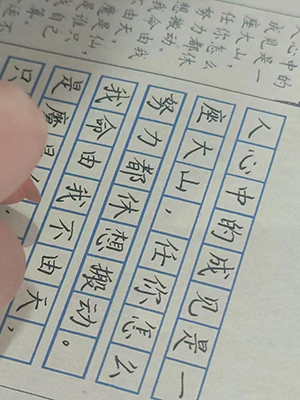 人心中的
成见是一
座大山，
任你怎么
努力都休
想搬动。
命由我
由天，
是仙
是谁只
我自己
人心中的成见是一
座大山，任你怎么
努力都休想搬动。
我命由我不由天，
是魔
只